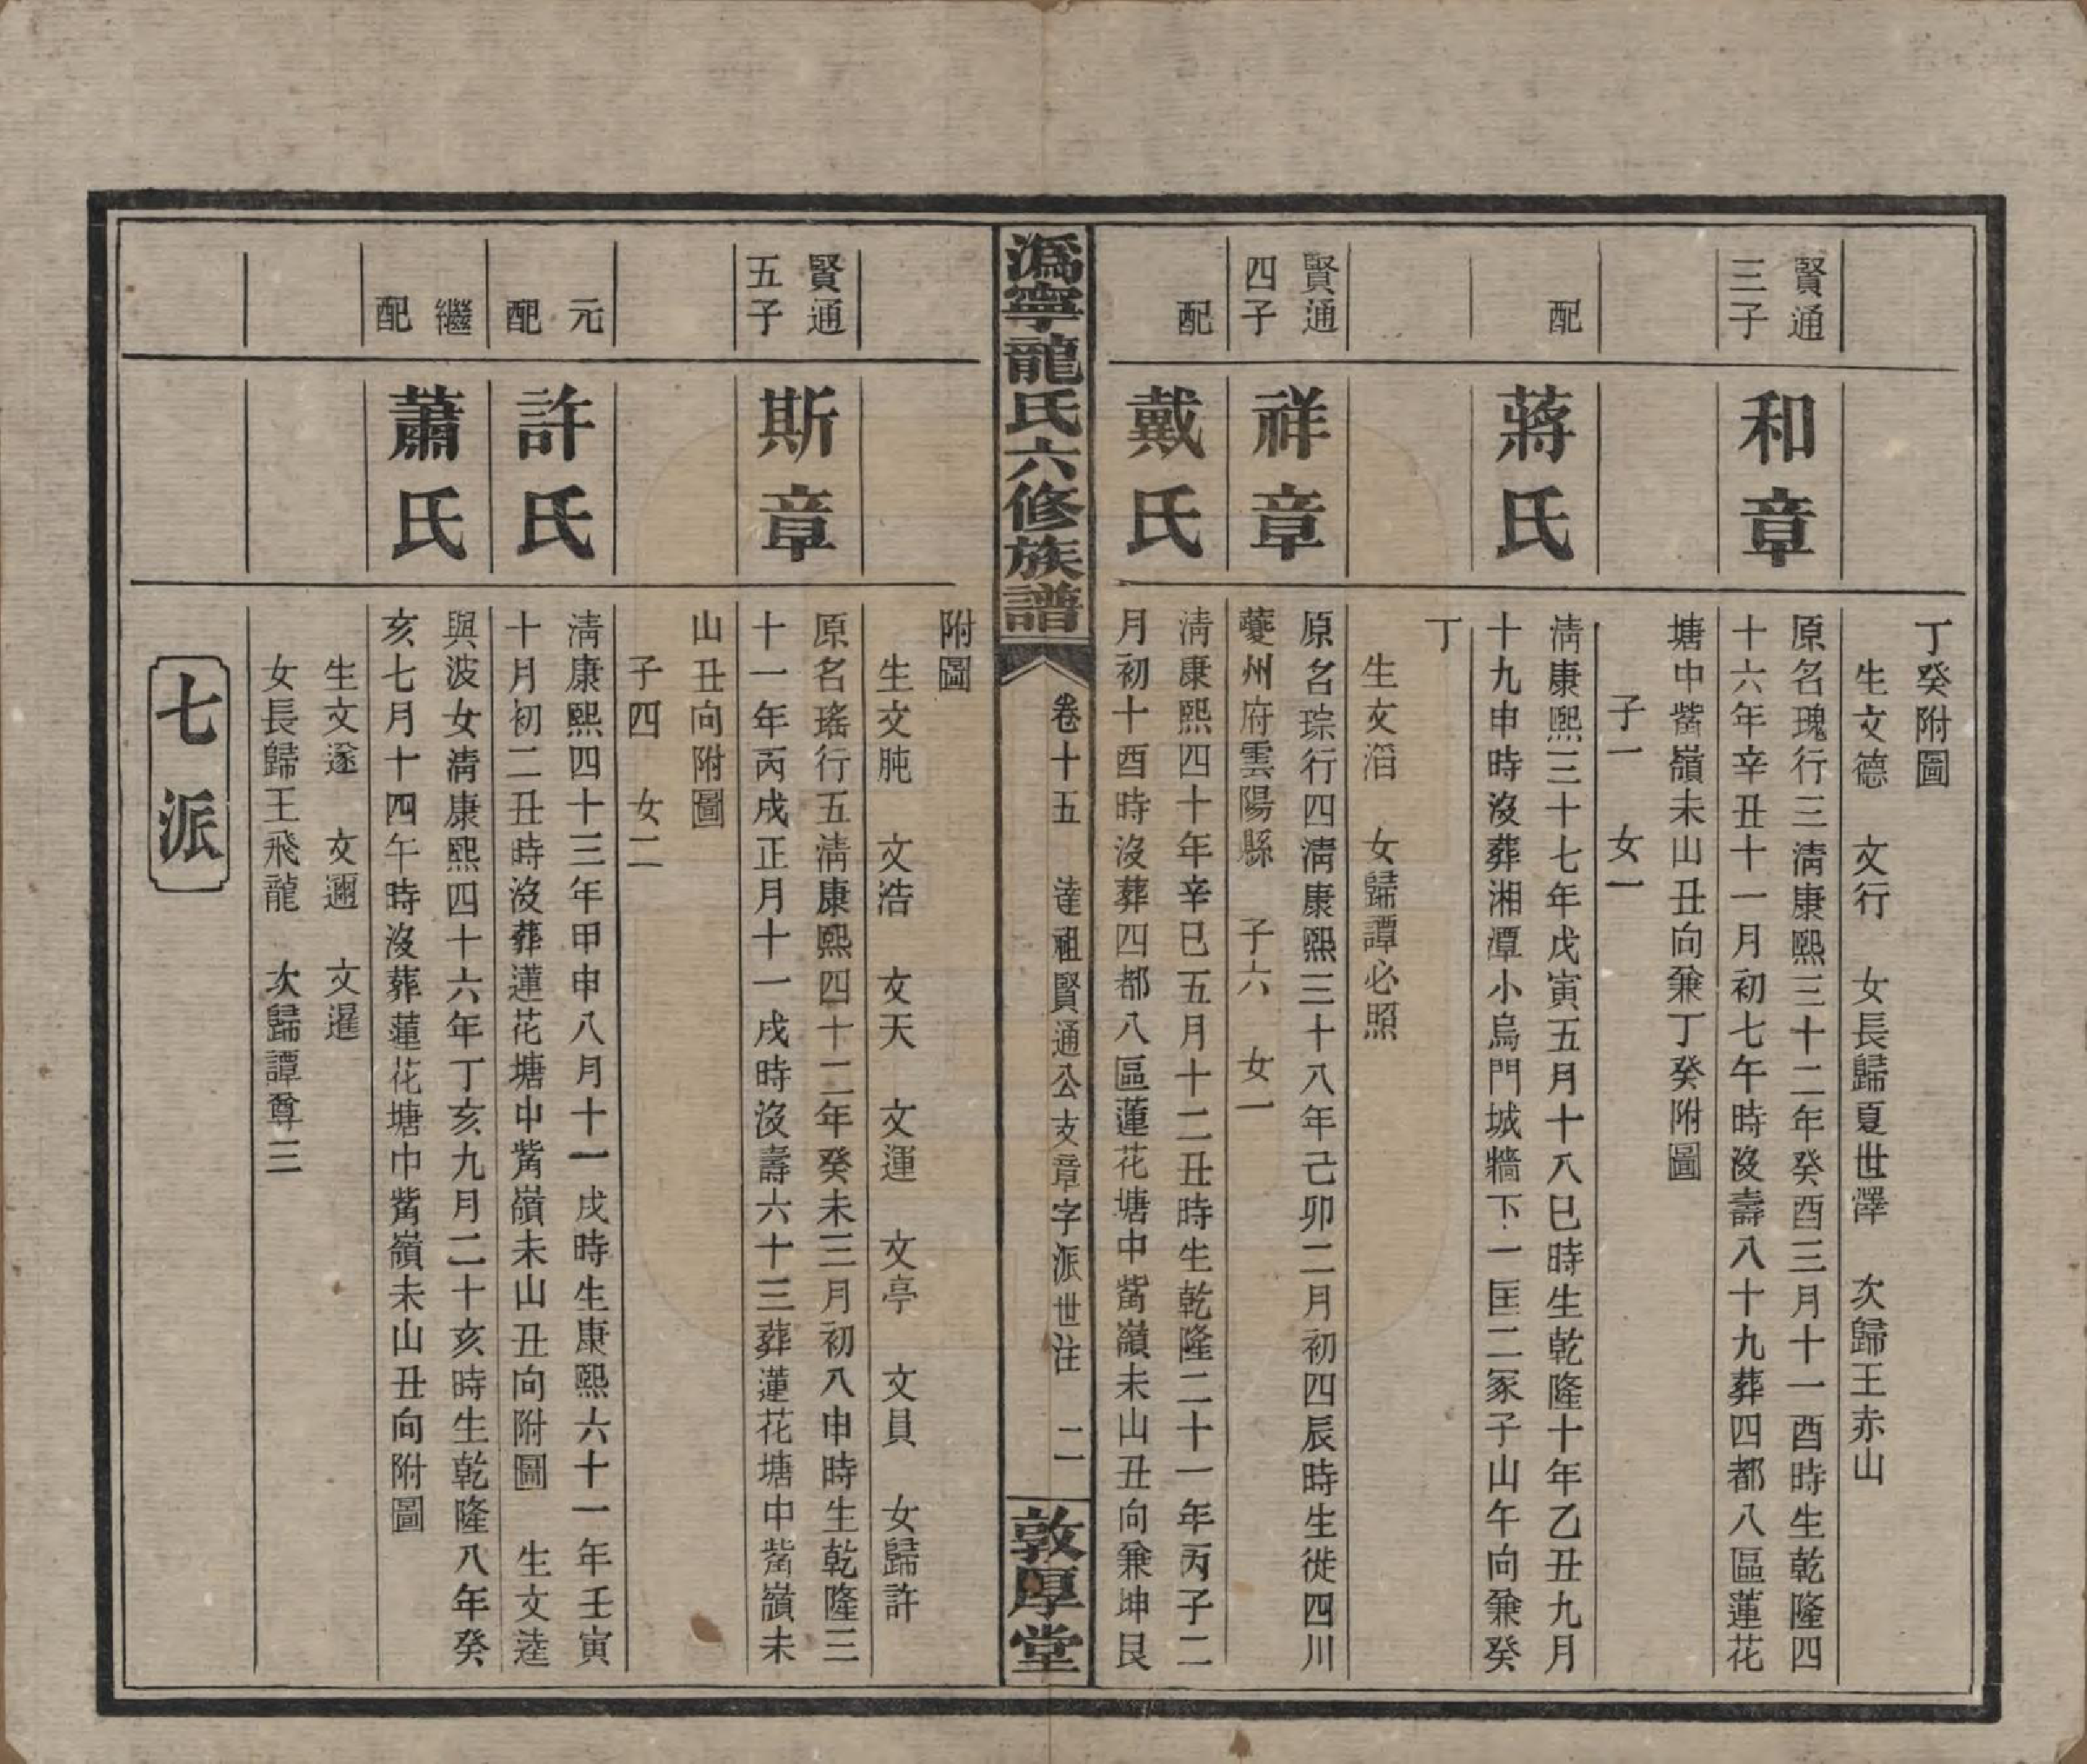 丁癸附圖
生文德　文行　女長歸夏世澤　次歸王赤山
賢通三子
和章
原名瑰行三淸康熙三十二年癸酉三月十一酉時生乾隆四
十六年辛丑十一月初七午時沒壽八十九葬四都八區蓮花
塘中觜嶺未山丑向兼丁癸附圖
子一　女一
配
蔣氏
淸康熙三十七年戊寅五月十八巳時生乾隆十年乙丑九月
十九申時沒葬湘潭小烏門城牆下一匡二冢子山午向兼癸
丁
生文滔　女歸譚必照
賢通四子
祥章
原名琮行四淸康熙三十八年己卯二月初四辰時生徙四川
夔州府雲陽縣　子六　女一
配
戴氏
淸康熙四十年辛巳五月十二丑時生乾隆二十一年丙子二
月初十酉時沒葬四都八區蓮花塘中觜嶺未山丑向兼坤艮
溈寧龍氏六修族譜
卷十五　達祖賢通公支章字派世注　二
敦厚堂
附圖
生文肫　文浩　文天　文運　文亭　文員　女歸許
賢通五子
斯章
原名瑤行五淸康熙四十二年癸未三月初八申時生乾隆三
十一年丙戌正月十一戌時沒壽六十三葬蓮花塘中觜嶺未
山丑向附圖
子四　女二
元配
許氏
淸康熙四十三年甲申八月十一戌時生康熙六十一年壬寅
十月初二丑時沒葬蓮花塘中觜嶺未山丑向附圖　生文逵
繼配
蕭氏
與波女淸康熙四十六年丁亥九月二十亥時生乾隆八年癸
亥七月十四午時沒葬蓮花塘中觜嶺未山丑向附圖
生文遂　文邇　文暹
女長歸王飛龍　次歸譚尊三
七派